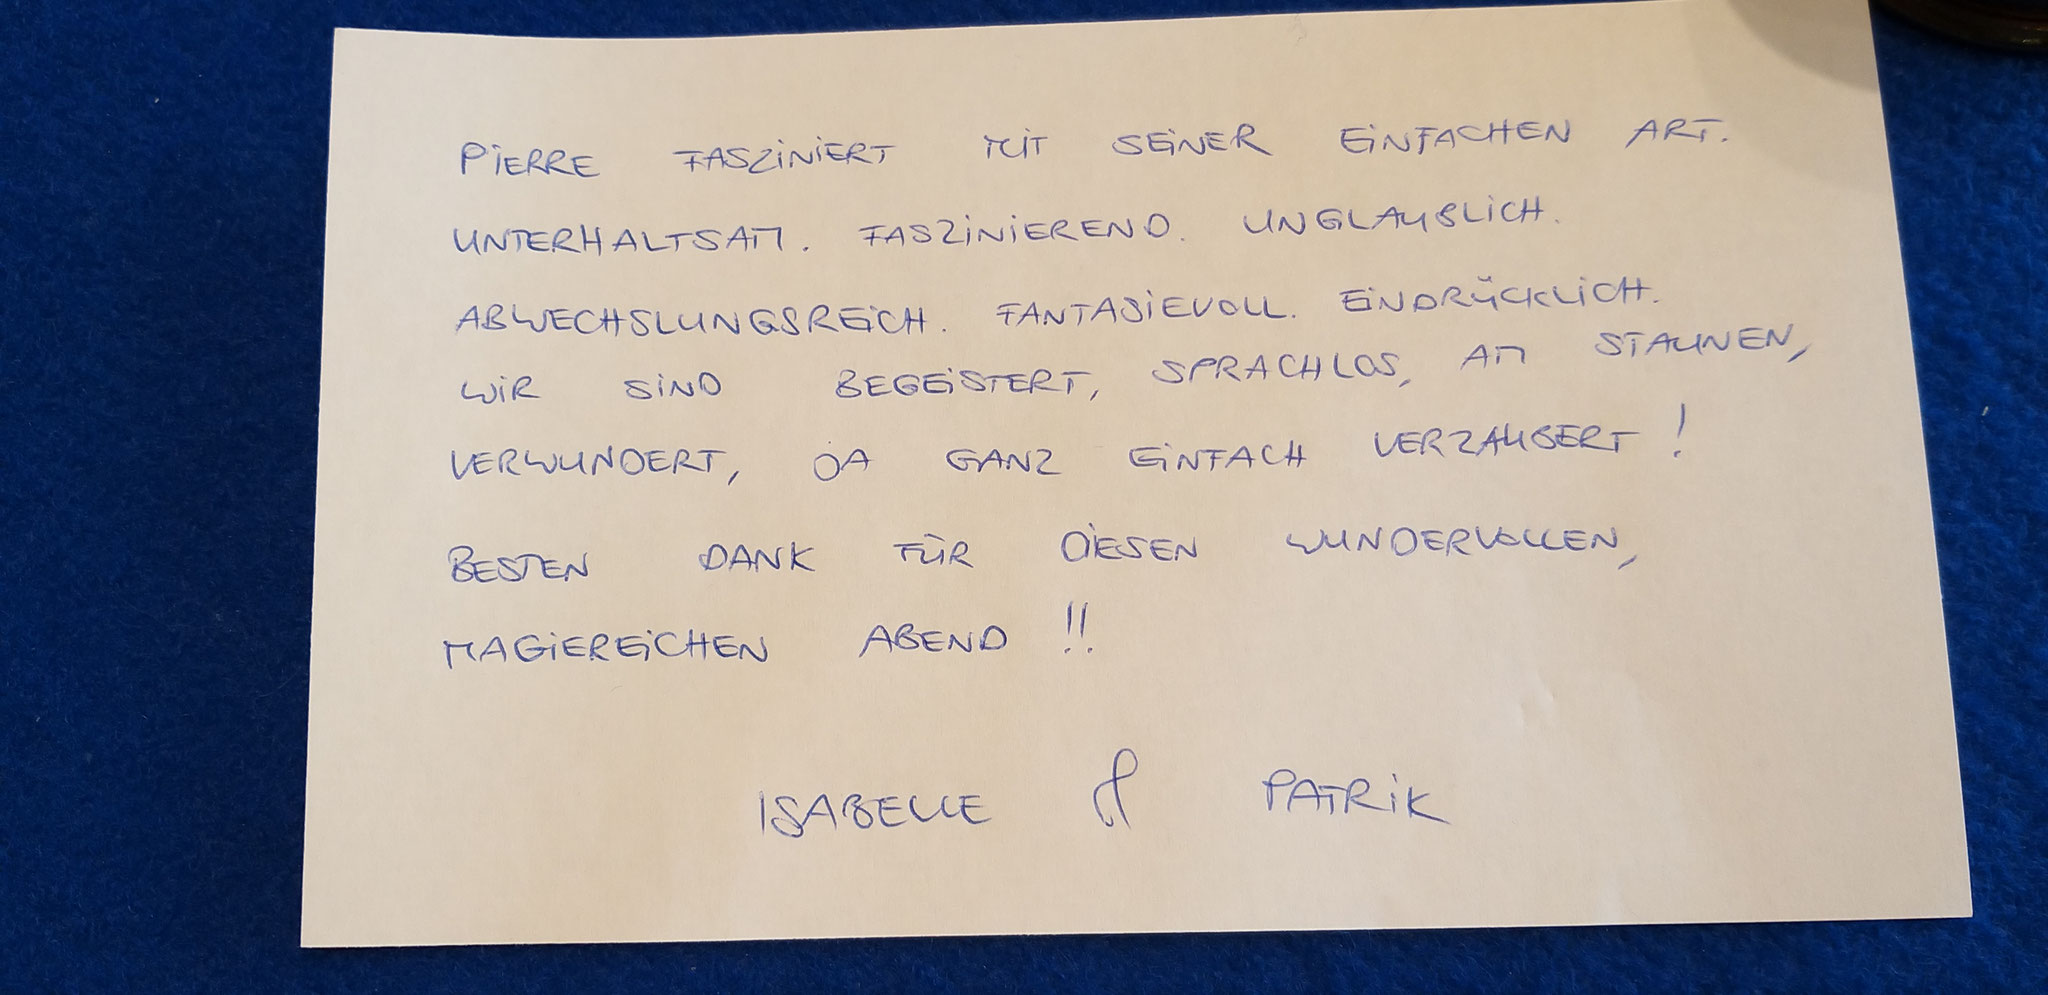 PiERRE FASZiNiERT MiT SEiNER EiNFACHEN ART.
UNTERHALTSAM. FASZiNiEREND. UNGLAUBLiCH.
ABWECHSLUNGSREiCH. FANTASiEVOLL. EiNDRÜCKLiCH.
WiR SiND BEGEiSTERT, SPRACHLOS, AM STAUNEN,
VERWUNDERT, JA GANZ EiNFACH VERZAUBERT!
BESTEN DANK FÜR DiESEN WUNDERVOLLEN,
MAGiEREiCHEN ABEND!!
ISABELLE & PATRiK